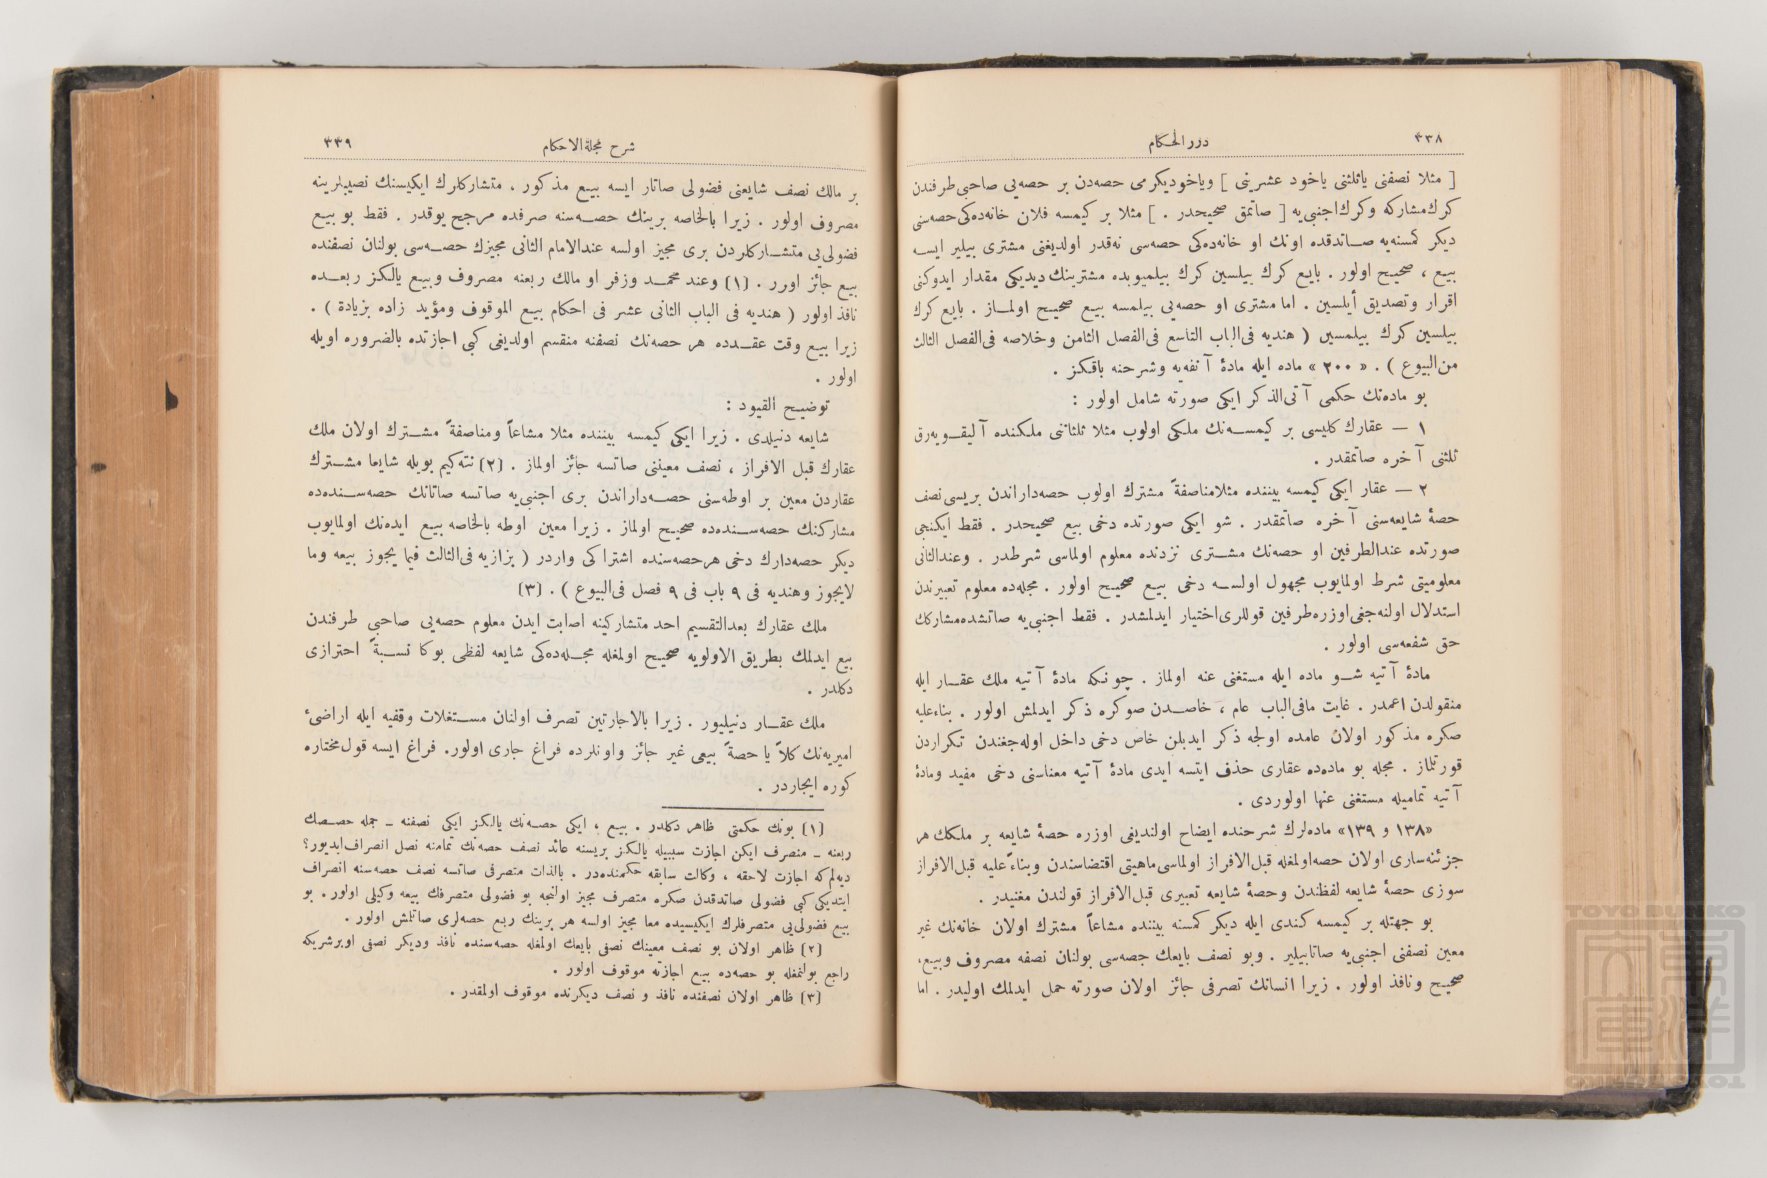 ٣٣٨
دررالحكام
[ مثلا نصفنى ياثلثنى ياخود عشرينى ] وياخودديكرمى حصه‌دن بر حصه‌يى صاحبى طرفندن
كرك مشاركه وكرك اجنبى‌يه [ صاتمق صحيحدر . ] مثلا بر كيمسه فلان خانه‌ده‌كى حصه‌سنى
ديكر كمسنه‌يه صاتدقده اونك او خانه‌ده‌كى حصه‌سى نه‌قدر اولديغنى مشترى بيلير ايسه
بيع ، صحيح اولور . بايع كرك بيلسين كرك بيلميوبده مشترينك ديديكى مقدار ايدوكنى
اقرار وتصديق أيلسين . اما مشترى او حصه‌يى بيلمسه بيع صحيح اولماز . بايع كرك
بيلسين كرك بيلمسين ( هنديه فى‌الباب التاسع فى‌الفصل الثامن وخلاصه فى‌الفصل الثالث
من‌البيوع ) . « ٢٠٠ » ماده ايله مادهٔ آنفه‌يه وشرحنه باقكز .
بو ماده‌نك حكمى آتى‌الذكر ايكى صورته شامل اولور :
١ — عقارك كليسى بر كيمسه‌نك ملكى اولوب مثلا ثلثاننى ملكنده آليقويه‌رق
ثلثنى آخره صاتمقدر .
٢ — عقار ايكى كيمسه بيننده مثلامناصفةً مشترك اولوب حصه‌داراندن بريسى نصف
حصهٔ شايعه‌سنى آخره صاتمقدر . شو ايكى صورتده دخى بيع صحيحدر . فقط ايكنجى
صورتده عندالطرفين او حصه‌نك مشترى نزدنده معلوم اولماسى شرطدر . وعندالثانى
معلوميتى شرط اولمايوب مجهول اولسه دخى بيع صحيح اولور . مجله‌ده معلوم تعبيرندن
استدلال اولنه‌جغى اوزره‌طرفين قوللرى‌اختيار ايدلمشدر . فقط اجنبى‌يه صاتشده‌مشاركك
حق شفعه‌سى اولور .
مادهٔ آتيه شو ماده ايله مستغنى عنه اولماز . چونكه مادهٔ آتيه ملك عقار ايله
منقولدن اعمدر . غايت مافى‌الباب عام ، خاصدن صوكره ذكر ايدلمش اولور . بناءعليه
صكره مذكور اولان عامده اولجه ذكر ايديلن خاص دخى داخل اوله‌جغندن تكراردن
قورتلماز . مجله بو ماده‌ده عقارى حذف ايتسه ايدى مادهٔ آتيه معناسنى دخى مفيد ومادهٔ
آتيه تماميله مستغنى عنها اولوردى .
«١٣٨ و ١٣٩» ماده‌لرك شرحنده ايضاح اولنديغى اوزره حصهٔ شايعه بر ملكك هر
جزئنه‌سارى اولان حصه‌اولمغله قبل‌الافراز اولماسى‌ماهيتى اقتضاسندن وبناءًعليه قبل‌الافراز
سوزى حصهٔ شايعه لفظندن وحصهٔ شايعه تعبيرى قبل‌الافراز قولندن مغنيدر .
بو جهتله بر كيمسه كندى ايله ديكر كمسنه بيننده مشاعاً مشترك اولان خانه‌نك غير
معين نصفنى اجنبى‌يه صاتابيلير . وبو نصف بايعك حصه‌سى بولنان نصفه مصروف وبيع،
صحيح ونافذ اولور . زيرا انسانك تصرفى جائز اولان صورته حمل ايدلمك اوليدر . اما
٣٣٩
شرح مجلةالاحكام
بر مالك نصف شايعنى فضولى صاتار ايسه بيع مذكور ، متشاركلرك ايكيسنك نصيبلرينه
مصروف اولور . زيرا بالخاصه برينك حصه‌سنه صرفده مرجح يوقدر . فقط بو بيع
فضولى‌يى متشاركلردن برى مجيز اولسه عندالامام الثانى مجيزك حصه‌سى بولنان نصفنده
بيع جائز اورر . (١) وعند محمد وزفر او مالك ربعنه مصروف وبيع يالكز ربعده
نافذ اولور ( هنديه فى الباب الثانى عشر فى احكام بيع الموقوف ومؤيد زاده بزيادة ) .
زيرا بيع وقت عقدده هر حصه‌نك نصفنه منقسم اولديغى كبى اجازتده بالضروره اويله
اولور .
توضيح القيود :
شايعه دنيلدى . زيرا ايكى كيمسه بيننده مثلا مشاعاً ومناصفةً مشترك اولان ملك
عقارك قبل الافراز ، نصف معيننى صاتسه جائز اولماز . (٢) نته‌كيم بويله شايعا مشترك
عقاردن معين بر اوطه‌سنى حصه‌داراندن برى اجنبى‌يه صاتسه صاتانك حصه‌سنده‌ده
مشاركنك حصه‌سنده‌ده صحيح اولماز . زيرا معين اوطه بالخاصه بيع ايده‌نك اولمايوب
ديكر حصه‌دارك دخى هرحصه‌سنده اشتراكى واردر ( بزازيه فى‌الثالث فيما يجوز بيعه وما
لايجوز وهنديه فى ٩ باب فى ٩ فصل فى‌البيوع ) . (٣)
ملك عقارك بعدالتقسيم احد متشاركينه اصابت ايدن معلوم حصه‌يى صاحبى طرفندن
بيع ايدلمك بطريق الاولويه صحيح اولمغله مجله‌ده‌كى شايعه لفظى بوكا نسبةً احترازى
دكلدر .
ملك عقار دنيليور . زيرا بالاجارتين تصرف اولنان مستغلات وقفيه ايله اراضىٔ
اميريه‌نك كلاً يا حصةً بيعى غير جائز واونلرده فراغ جارى اولور. فراغ ايسه قول‌مختاره
كوره ايجاردر .
(١) بونك حكمتى ظاهر دكلدر . بيع ، ايكى حصه‌نك يالكز ايكى نصفنه ـ جمله حصصك
ربعنه ـ منصرف ايكن اجازت سببيله يالكز بريسنه عائد نصف حصه‌نك تمامنه نصل انصراف‌ايديور؟
ديه‌لم‌كه اجازت لاحقه ، وكالت سابقه حكمنده‌در . بالذات متصرفى صاتسه نصف حصه‌سنه انصراف
ايتديكى كبى فضولى صاتدقدن صكره متصرف مجيز اولنجه بو فضولى متصرفك بيعه وكيلى اولور . بو
بيع فضولى‌يى متصرفلرك ايكيسيده معا مجيز اولسه هر برينك ربع حصه‌لرى صاتلمش اولور .
(٢) ظاهر اولان بو نصف معينك نصفى بايعك اولمغله حصه‌سنده نافذ وديكر نصفى اوبرشريكه
راجع بولنمغله بو حصه‌ده بيع اجازته موقوف اولور .
(٣) ظاهر اولان نصفنده نافذ و نصف ديكرنده موقوف اولمقدر .
TOYO BUNKO